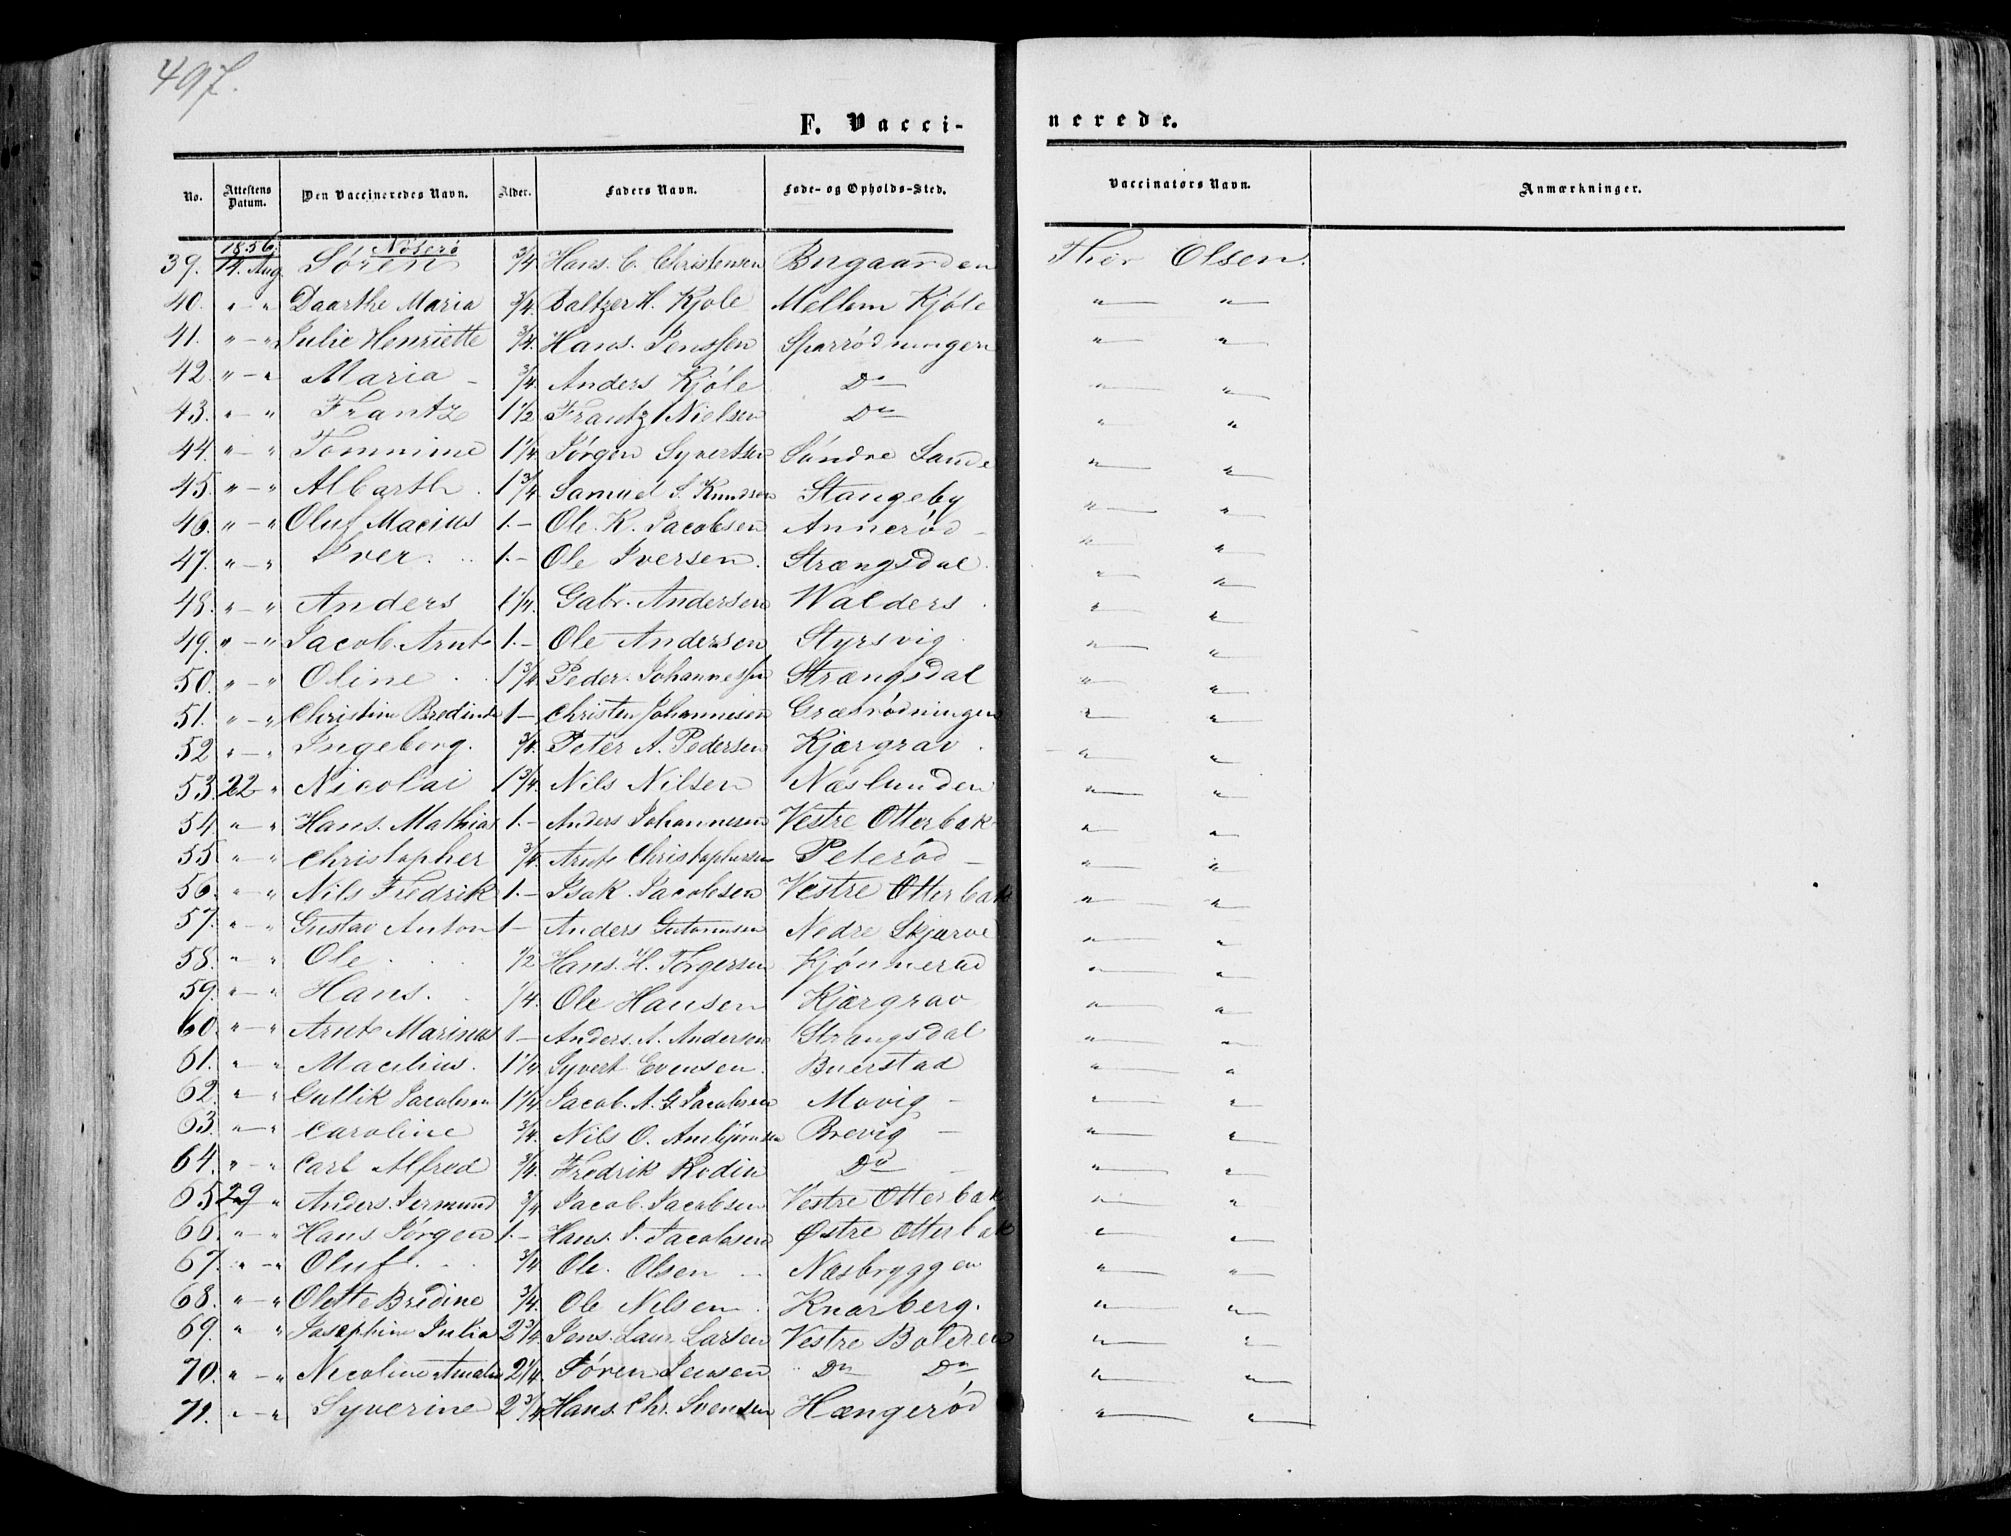 497.
F. Vacci-
nerede.
No. Attestens Datum. Den Vaccineredes Navn. Alder. Faders Navn. Føde- og Opholds-Sted. Vaccinators Navn. Anmærkninger.
1856. Nøterø
39. 14. Aug Søren 3/4 Hans C. Christensen Bugaarden Thor Olsen.
40. " — " Daarthe Maria 3/4. Baltzer H. Kjøle Mellem Kjøle " — " —
41. " — " Julie Henriette 3/4. Hans Jenssen Sparrødningen " — " —
42. " — " Maria — 3/4. Anders Kjøle Do " — " —
43. " — " Frantz 1 1/2 Frantz Nielsen Do " — " —
44. " — " Tommine 1 1/4 Jørgen Syvertsen Søndre Sande " — " —
45. " — " Albarth 1 3/4 Samuel S. Knudsen Stangeby " — " —
46. " — " Oluf Macius 1. — Ole K. Jacobsen Annerød — " — " —
47. " — " Iver 1. — Ole Iversen. Strængsdal. " — " —
48. " — " Anders 1 1/4. Gabr. Andersen Walders " — " —
49. " — " Jacob Arnt 1. — Ole Andersen Styrsvig. " — " —
50. " — " Oline 1 3/4 Peder Johannessen Strængsdal " — " —
51. " — " Christine Bredine 1 — Christen Johannesen Græsrødningen " — " —
52 " — " Ingeborg. 3/4. Peter A. Pedersen Kjærgrav " — " —
53. 22 " Nicolai 1 3/4 Nils Nilsen Næslunden " — " —
54. " — " Hans Mathias 1. — Anders Johannesen Vestre Otterbak " — " —
55 " — " Christopher 3/4 Arnt Christophersen Peterød — " — " —
56. " — " Nils Fredrik 1. — Isak Jacobsen Vestre Otterbak " — " —
57. " — " Gustav Anton 1 — Anders Nedre Skjærve " — " —
58. " — " Ole 1/2 Hans H. Torgersen Kjønnerød " — " —
59. " — " Hans. 1/4. Ole Hansen Kjærgrav " — " —
60. " — " Arnt Marinus 1 — Anders A. Andersen Strangsdal " — " —
61. " — " Macilius. 1 1/4 Syvert Evensen. Buerstad " — " —
62. " — " Gullik Jacobsen 1 1/4 Jacob A. G. Jacobsen Movig — " — " —
63. " — " Caroline 3/4. Nils O. Brevig — " — " —
64. " — " Carl Alfred 3/4. Fredrik Rodin Do — " — " —
65 29 " Anders Jermund 3/4 Jacob Jacobsen Vestre Otterbak " — " —
66. " — " Hans Jørgen 1. — Hans J. Jacobsen Østre Otterbak " — " —
67. " — " Oluf. 3/4 Ole Olsen — Næsbryggen " — " —
68. " — " Olette Bredine 3/4. Ole Nilsen. Knarberg. " — " —
69. " — " Josephine Julia 2 3/4 Jens Laur. Larsen Vestre Bolæren " — " —
70. " — " Nicoline Amalie 2 1/4 Søren Jensen Do Do " — " —
71. " — " Syverine 2 3/4 Hans Chr. Svensen Hængerød " — " —